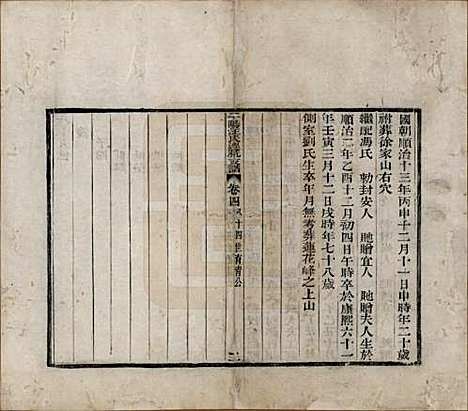 國朝順治十三年丙申十二月十一日申時年二十歲
祔葬徐家山右穴
繼配馮氏 勅封安人 貤贈宜人 貤贈夫人生於
順治二年乙酉十二月初四日午時卒於康熙六十一
年壬寅三月十二日戌時年七十八歲
側室劉氏生卒年月無考葬蓮花峰之上山
卷四 十四世
二